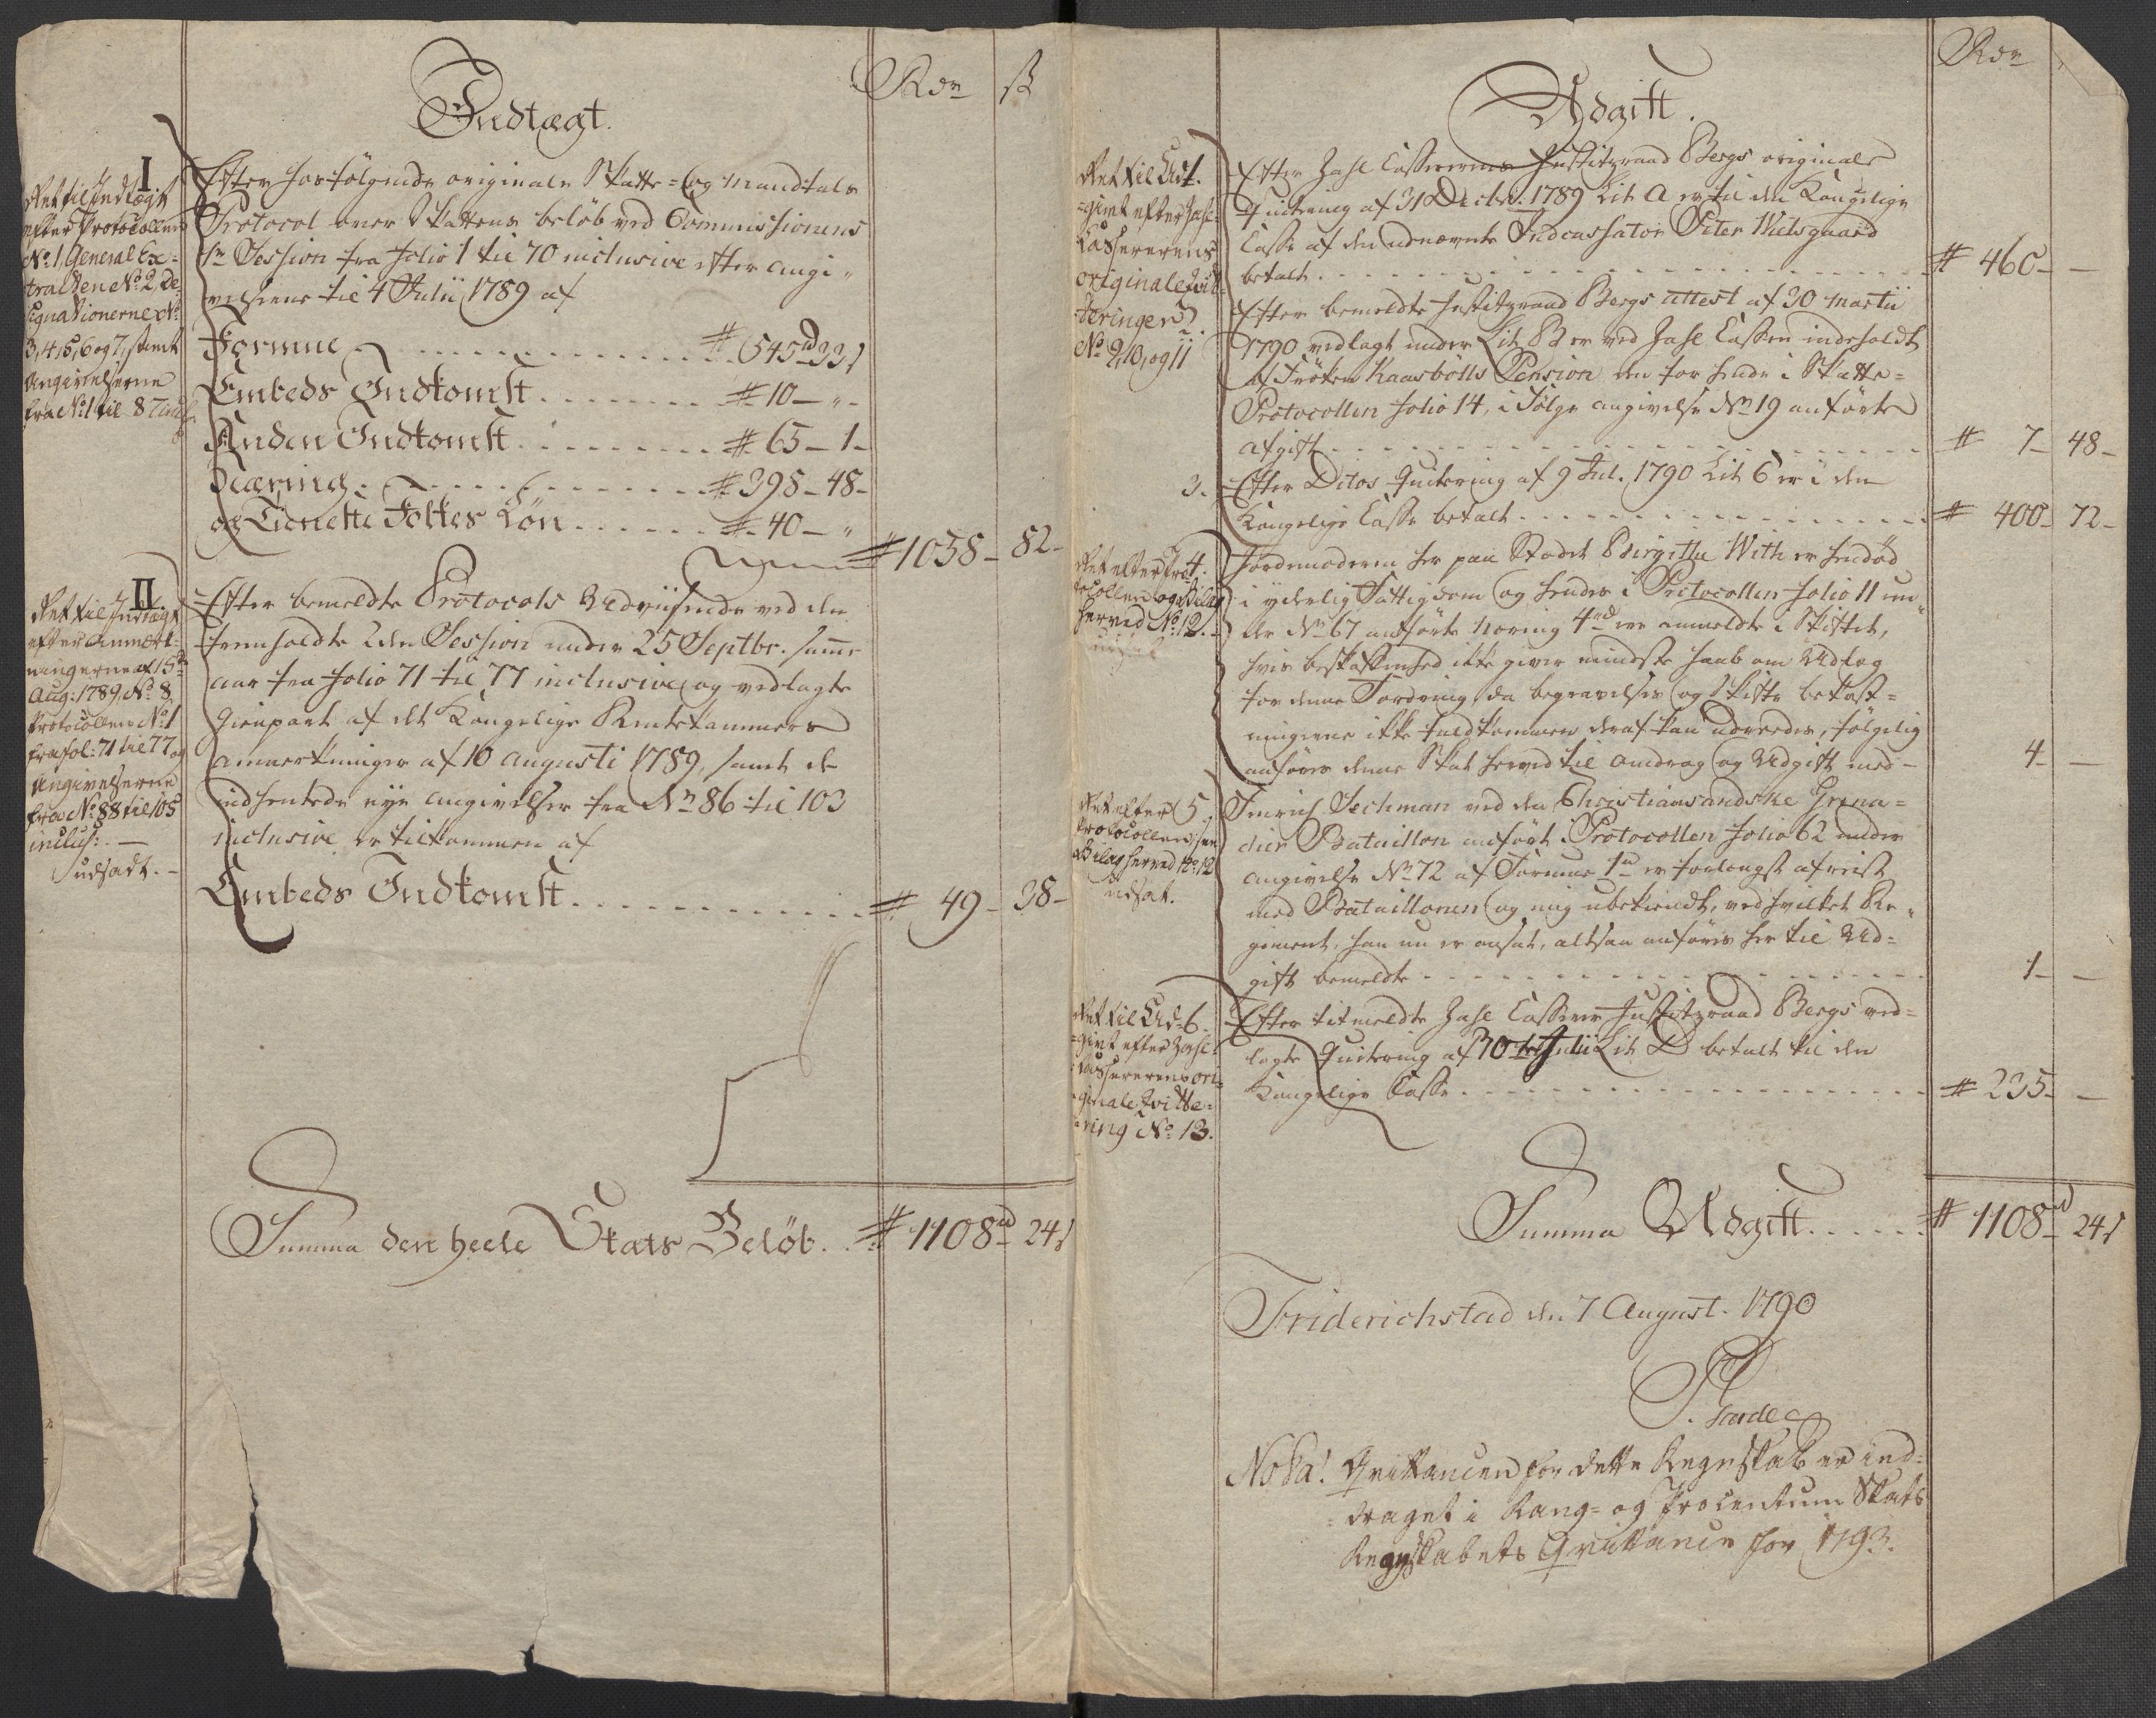 Rdr ß
Indtægt.
I.
Ret til Indtægt
efter Protocollen
No. 1, General Ex-
tracten No. 2, De-
signationerne No.
3, 4, 5, 6 og 7, samt
Angivelserne
fra No. 1 til 87 incl.
Efter hosfölgende originale Skatte- og Mandtals
Protocol over Skattens belöb ved Commissionens
1te Session fra Folio 1 til 70 inclusive efter angi-
velserne til 4 Julii 1789 af
Formue # 545 rd 33 s
Embeds Indkomst # 10 - " -
Anden Indkomst # 65 - 1 -
Næring # 398 - 48 -
og Tienette Folkes Lön # 40 - "
# 1058 - 82 -
II.
Ret til Indtægt
efter Anmærk-
ningerne af 15de
Aug: 1789, No. 8,
Protocollen No. 1
fra fol: 71 til 77 og
Angivelserne
fra No. 88 til 105
inclus: —
udsadt. -
Efter bemeldte Protocols Udviisende ved den
fremholdte 2den Session under 25 Septbr. samme
aar fra Folio 71 til 77 inclusive og vedlagte
Gienpart af det Kongelige Rentekammers
anmerkninger af 10 Augusti 1789, samt de
indhentede nye angivelser fra No 86 til 103
inclusive er tilkommen af
Embeds Indkomst # 49 - 38 -
Summa den heele Skats Belöb # 1108 rd 24 s
Rdr
Udgift.
Ret til Ud-
givt efter Zahl-
Casererens
originale Quit-
teringer
No. 9, 10, og 11
1. Efter Zahl Casserernes Justitzraad Bergs originale
Quitering af 31 Decbr. 1789 Lit A er til den Kongelige
Casse af den udnævnte Indcassator Peter Wielsgaard
betalt # 460 - —
2. Efter bemeldte Justitzraad Bergs Attest af 30 Martii
1790 vedlagt under Lit B er ved Zahl Cassen indeholdt
af Fröken Kaasbölls Pension den for hende i Skatte-
Protocollen Folio 14, i Fölge angivelse No 19 anförte
afgift # 7 - 48 -
3. Efter Ditos Quitering af 9 Jul. 1790 Lit C er i den
Kongelige Casse betalt # 400 - 72 -
Ret efter Pro- 4.
tocollen og Bilag
herved No. 12.
udsat
Jordemoderen her paa Stædet Birgitta With er hendöd
i yderlig Fattigdom og hendes i Protocollen Folio 11 un-
der No 67 anförte Næring 4 rd ere anmeldte i Skiftet,
hvis beskaffenhed ikke giver mindste haab om Udlæg
for denne Fordring, da begravelses og Skifte bekost-
ningerne ikke fuldkommen deraf kan udreedes, fölgelig
anföres denne Skat herved til omdrag og Udgift med - 4 - —
Ret efter 5.
Protocollen, see
Bilag herved No. 12
udsat.
Hinrich Sechman ved den Christiansandske Grena-
dier Bataillon anfört i Protocollen Folio 62 under
angivelse No 72 af Formue 1 rd er forlængst afreist
med Bataillonen og mig ubekiendt, ved hvilket Re-
giment, han nu er ansat, altsaa anföres her til Ud-
gift bemeldte 1 - —
Ret til Ud- 6.
givt efter Zahl-
Casererens ori-
ginale Qvitte-
ring No. 13.
Efter titmeldte Zahl Casserer Justitzraad Bergs ved-
lagte Quitering af 30 Julii Lit D betalt til den
Kongelige Casse # 235 - —
Summa Udgift # 1108 rd 24 s
Friderichstad den 7 August. 1790
Nota! Qvittancen for dette Regnskab er ind-
draget i Rang- og Procentum Skats
Regnskabets Qvittance for 1793.